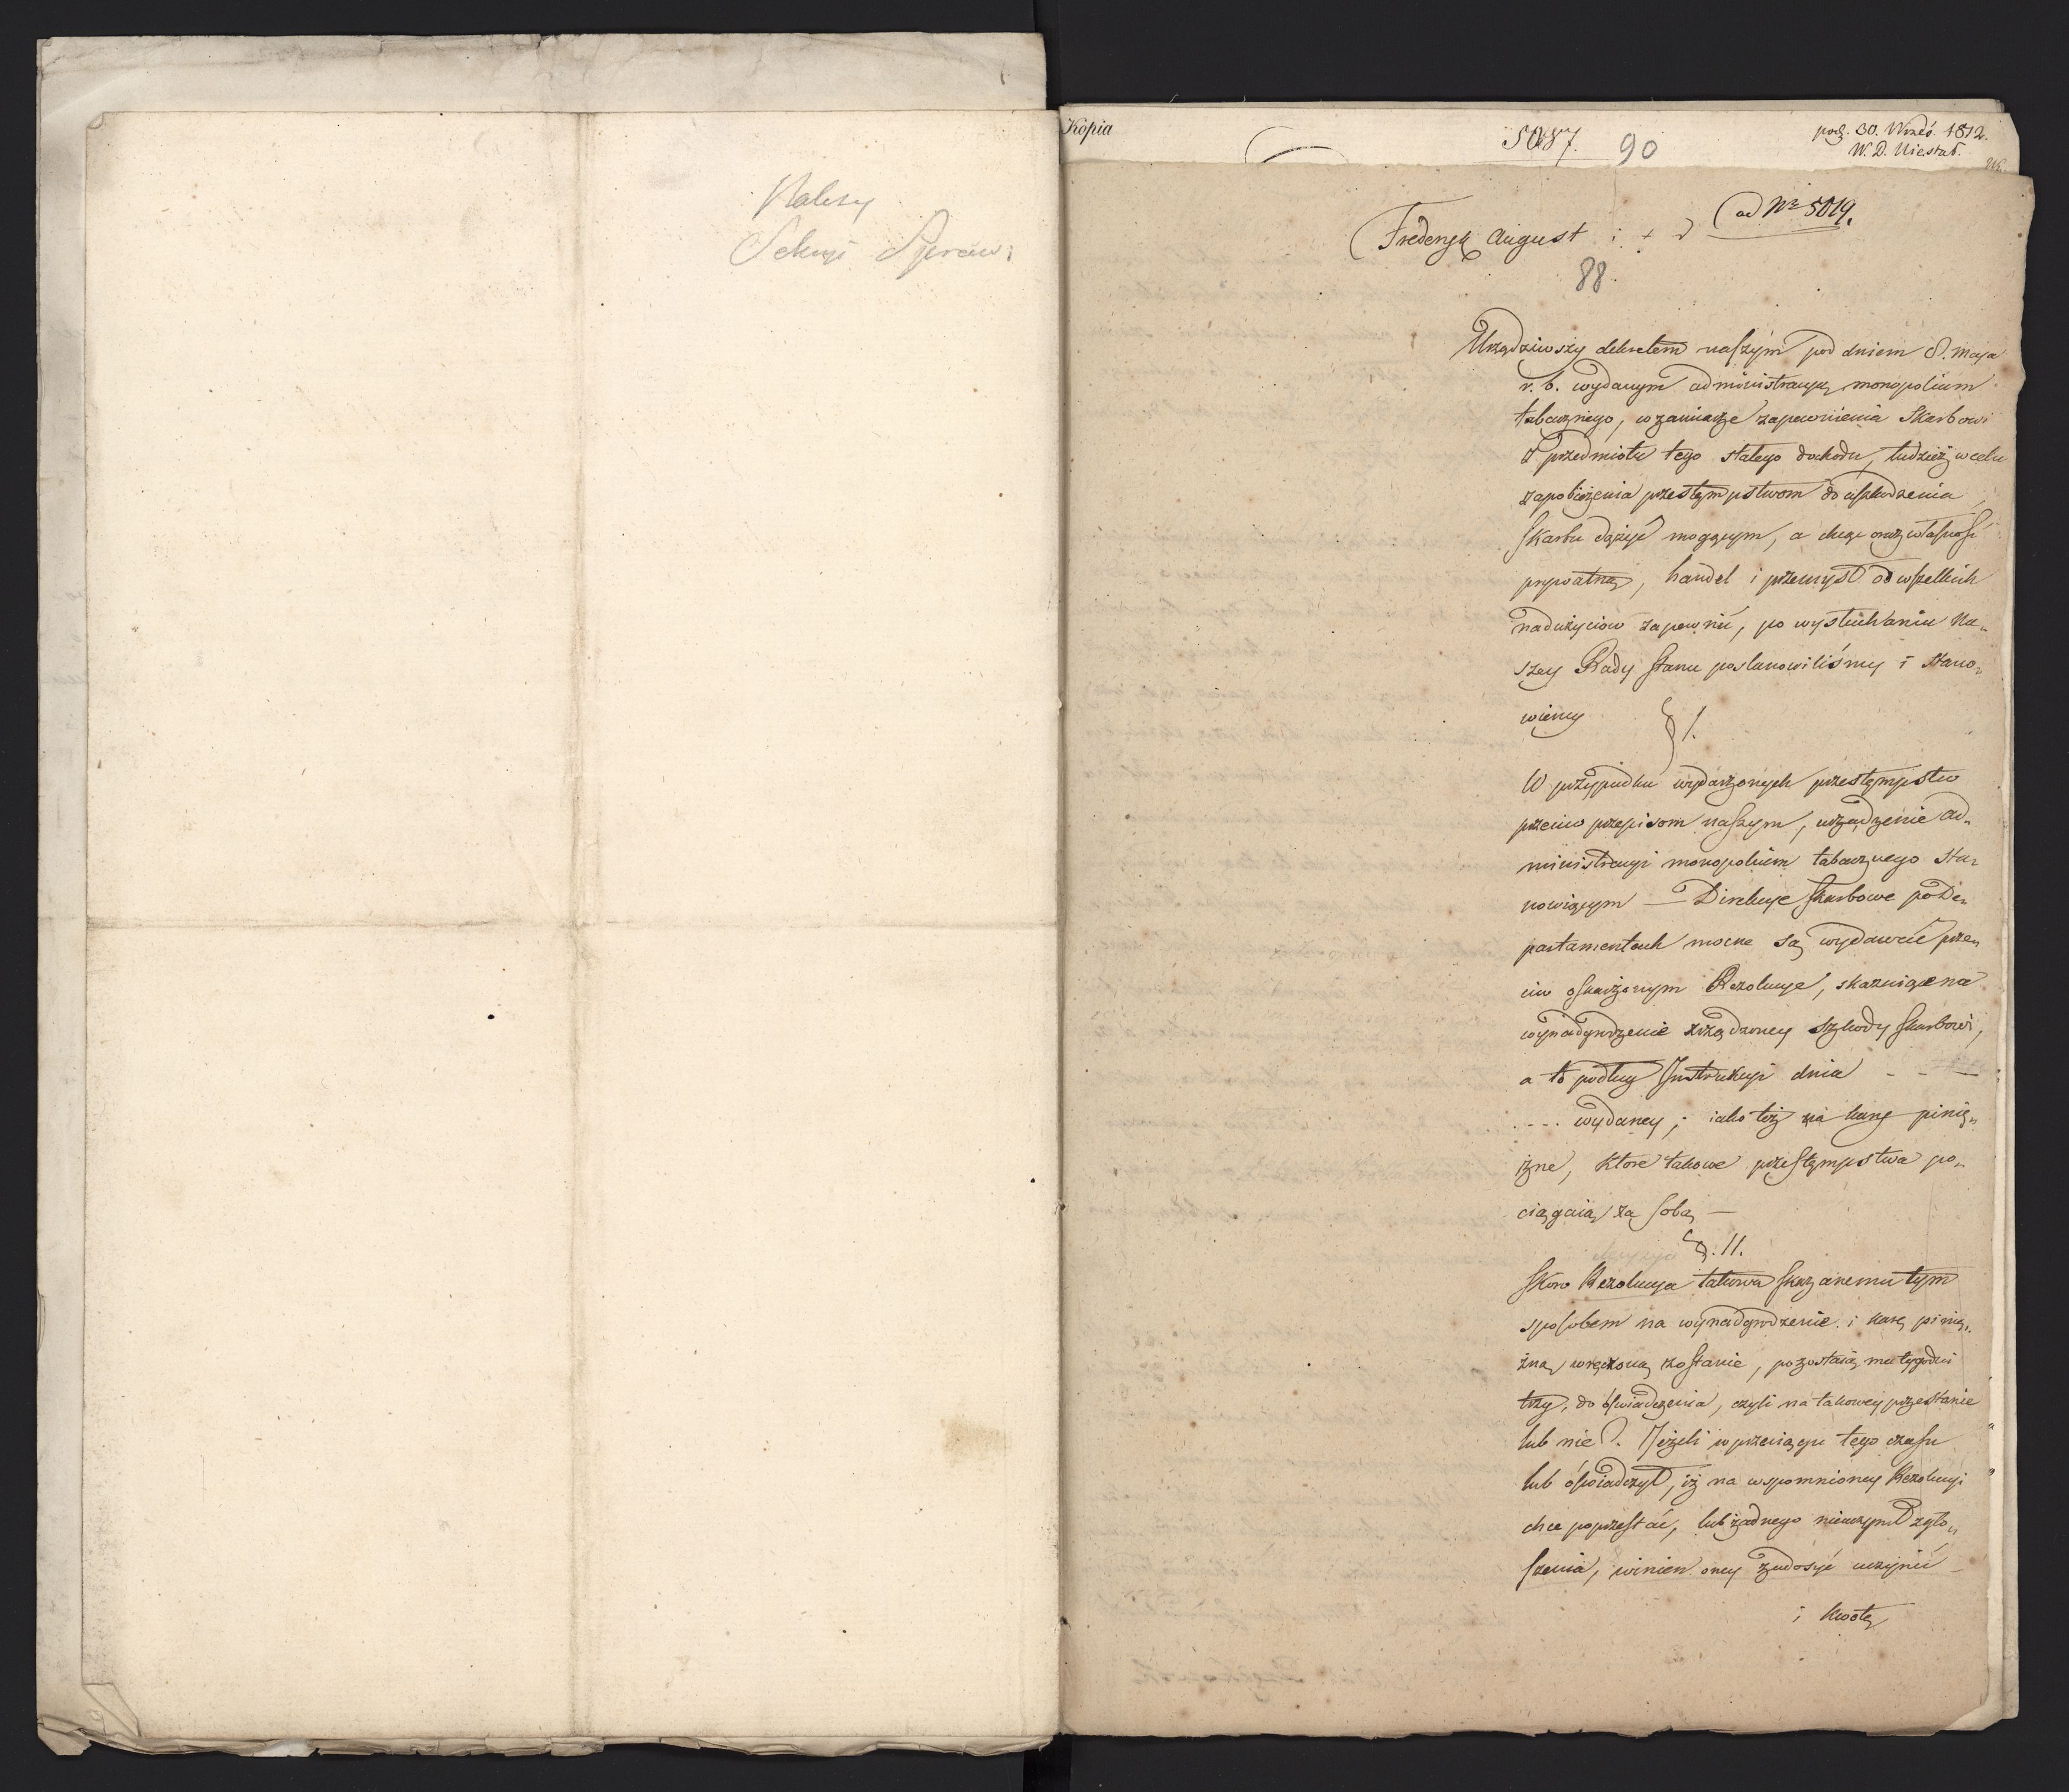 Należy
Sekcyi Spraw:
Kopia
5087.
90
pod. 30. Wrześ. 1812.
W. D.
ad Nr 5019.
Frederyk August i t d
88.
Urządziwszy dekretem naszym pod dniem 8. maja
r. b. wydanym administracyą monopolium
tabacznego, w zamiarze zapewnienia Skarbowi
z przedmiotu tego stałego dochodu, tudzież w celu
zapobieżenia przestęmpstwom do uszkodzenia
skarbu dążyć mogącym, a chcąc oraz własność
prywatną, handel i przemysł od wszelkich
nadużyciow zapewnić, po wysłuchaniu Na„
szey Rady Stanu postanowiliśmy i stano„
wiemy
§ 1.
W przypadku wydarzonych przestęmpstw
przeciw przepisom naszym, urządzenie ad„
ministracyi monopolium tabacznego sta„
nowiącym — Direkcye skarbowe po De„
partamentach mocne są wydawać prze„
ciw oskarżonym Rezolucye, skazuiące na
wynadgrodzenie zrządzoney szkody skarbowi,
a to podług Instrukcyi dnia - - —
.--- wydaney; iako też na karę pinię„
żne, ktore takowe przestęmpstwa po„
ciągaią za sobą —
§. 11.
Skoro Rezolucya takowa skazanemu tym
sposobem na wynadgrodzenie i karę pinię„
żną wręczoną zostanie, pozostaią mu tygodni
trzy, do oświadczenia, czyli na takowey przestanie
lub nie?. Jeżeli w przeciągu tego czasu
lub oświadczył, iż na wspomnioney Rezolucyi
chce poprzestać, lub żadnego nieuczynił zgło„
szenia, winien oney zadosyć uczynić —
i kwotę